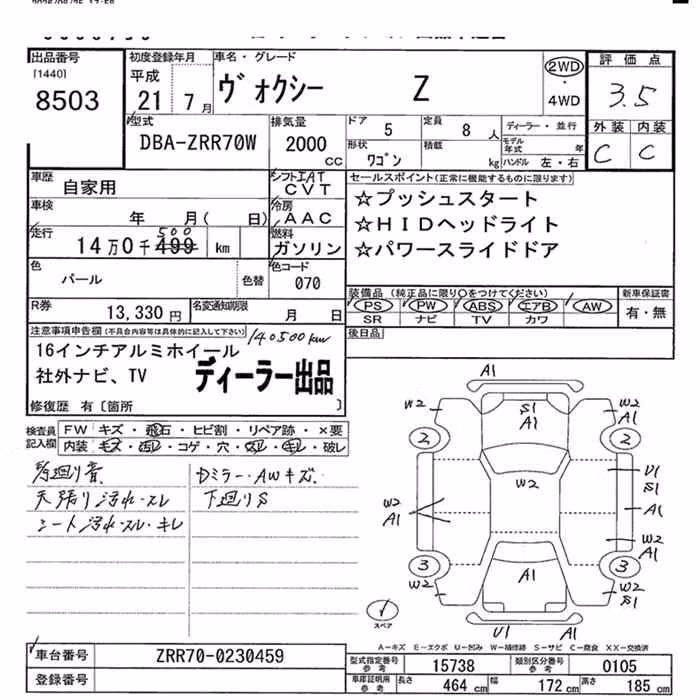 出品番号
[1440]
8503
初度登録年月
平成
21年 7月
車名・グレード
ヴォクシー Z
2WD
・
4WD
評価点
3.5
外装 内装
C C
型式
DBA-ZRR70W
排気量
2000
CC
ドア 5
定員 8 人
ディーラー・並行
形状 ワゴン
積載 kg
モデル年式 年
ハンドル 左・右
車歴
自家用
シフト IAT
CVT
セールスポイント(正常に機能するものに限ります)
☆プッシュスタート
☆HIDヘッドライト
☆パワースライドドア
車検
年 月( 日)
冷房
AAC
走行
500
14万0千499 km
燃料
ガソリン
色
パール
色替
色コード
070
装備品 (純正品に限り○をつけてください)
PS PW ABS エアB AW
SR ナビ TV カワ
新車保証書
有・無
R券
13,330円
名変通知期限
月 日
後日品
注意事項申告欄(不具合内容等は具体的に記入して下さい)
140500km
16インチアルミホイール
社外ナビ、TV
ディーラー出品
修復歴 有〔箇所 〕
検査員記入欄
FW キズ・飛石・ヒビ割・リペア跡・×要
内装 キレ・破レ
天張り汚れ・スレ
シート汚れ・スレ・キレ
Dミラー・AWキズ
下廻りS
A1
W2
A1
S1
A1
W2
A1
2
2
W2
U1
S1
W2
A1
A1
W2
A1
3
3
A1
W2
W2
S1
スペア
U1
A1
A-キズ E-エクボ U-凹み W-補修跡 S-サビ C-腐食 XX-交換済
車台番号
ZRR70-0230459
登録番号
型式指定番号
参考
15738
類別区分番号
参考
0105
車庫証明用
参考
長さ 464 cm
幅 172 cm
高さ 185 cm